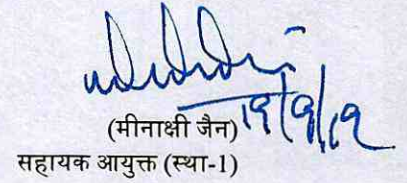 19/9/19
(मीनाक्षी जैन)
सहायक आयुक्त (स्था-1)